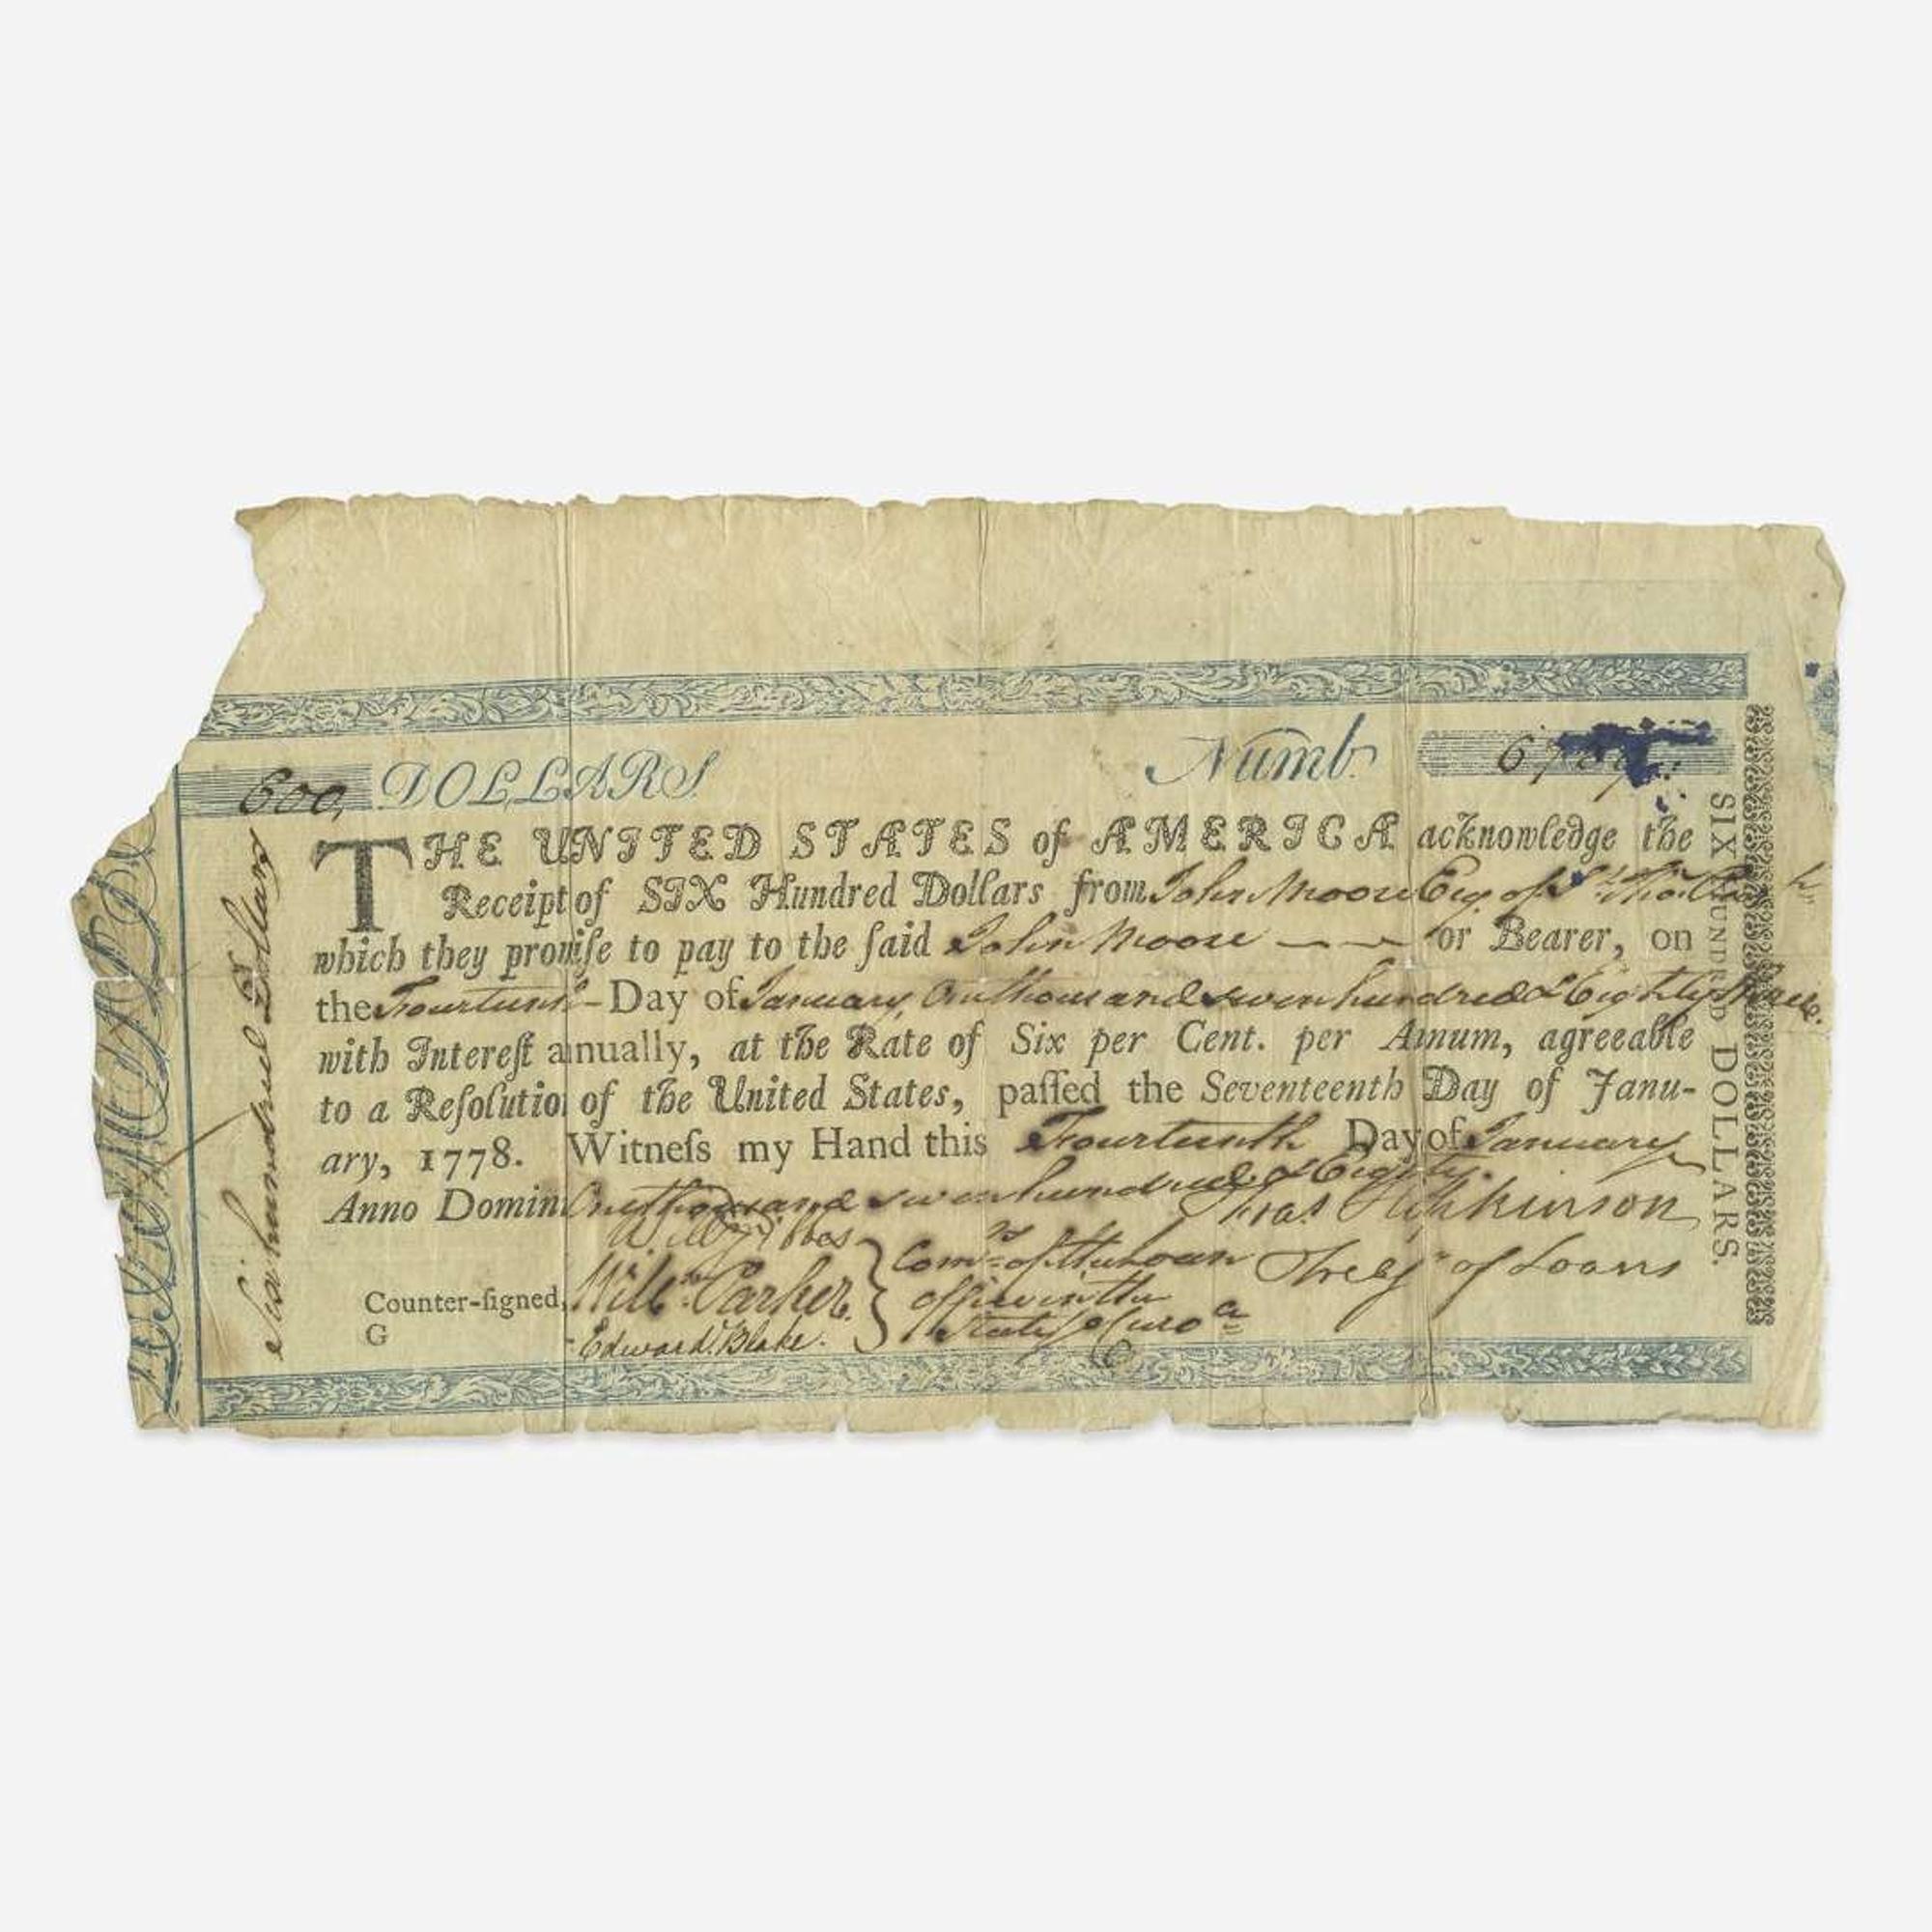 600, DOLLARS. Numb. 67
THE UNITED STATES of AMERICA acknowledge the
Receipt of SIX Hundred Dollars from John Moore Esq. of St. Tho.
which they promiſe to pay to the ſaid John Moore or Bearer, on
the Fourteenth Day of January, One thousand seven hundred & Eighty three.
with Intereſt annually, at the Rate of Six per Cent. per Annum, agreeable
to a Reſolutio of the United States, paſſed the Seventeenth Day of Janu-
ary, 1778. Witneſs my Hand this Fourteenth Day of January
Anno Domini One thousand seven hundred & Eighty.
Fras Hopkinson
Treasr of Loans
Counter-ſigned,
G
Will Gibbes
Willm Parker
Edward Blake.
Comrs of the Loan
office in the
State So Caroa
Six hundred Dollars
SIX HUNDRED DOLLARS.